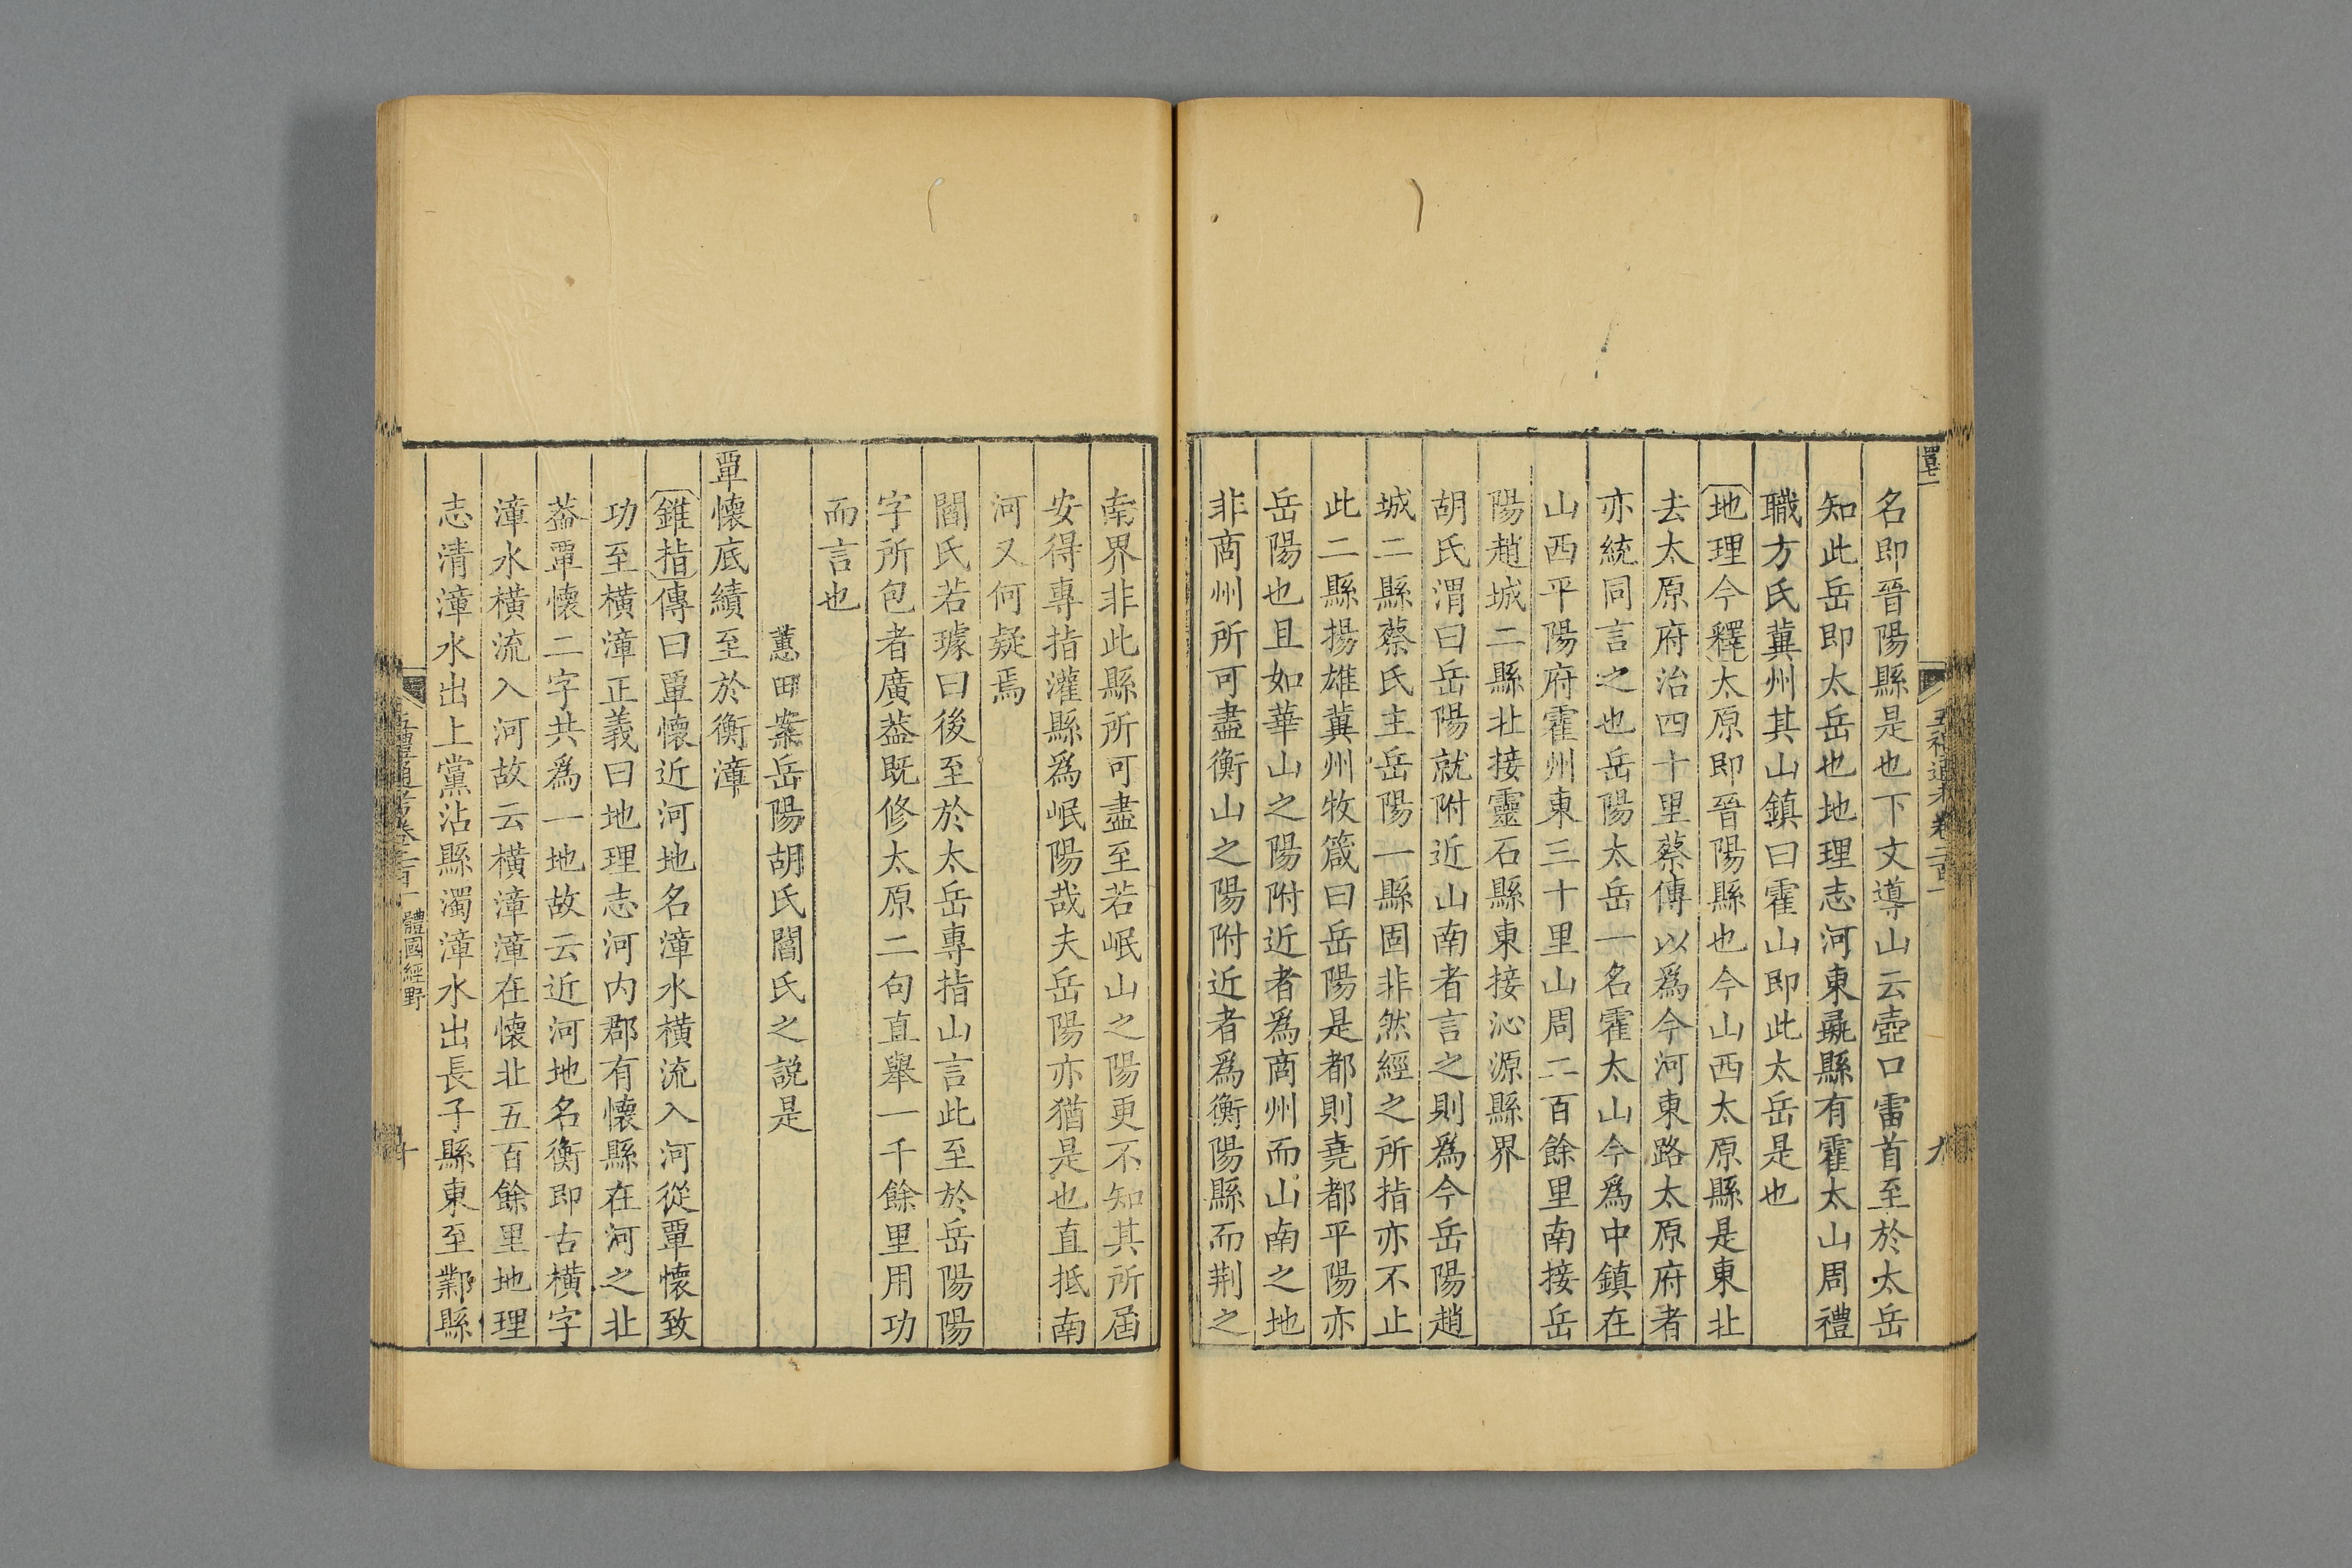 五禮通考卷二百一
九
名即晉陽縣是也下文導山云壺口雷首至於太岳
知此岳即太岳也地理志河東彘縣有霍太山周禮
職方氏冀州其山鎮曰霍山即此太岳是也
地理今釋太原即晉陽縣也今山西太原縣是東北
去太原府治四十里蔡傳以爲今河東路太原府者
亦統同言之也岳陽太岳一名霍太山今爲中鎮在
山西平陽府霍州東三十里山周二百餘里南接岳
陽趙城二縣北接靈石縣東接沁源縣界
胡氏渭曰岳陽就附近山南者言之則爲今岳陽趙
城二縣蔡氏主岳陽一縣固非然經之所指亦不止
此二縣揚雄冀州牧箴曰岳陽是都則堯都平陽亦
岳陽也且如華山之陽附近者爲商州而山南之地
非商州所可盡衡山之陽附近者爲衡陽縣而荆之
南界非此縣所可盡至若岷山之陽更不知其所屆
安得專指灌縣爲岷陽哉夫岳陽亦猶是也直抵南
河又何疑焉
閻氏若璩曰後至於太岳專指山言此至於岳陽陽
字所包者廣葢既修太原二句直舉一千餘里用功
而言也
蕙田案岳陽胡氏閻氏之說是
覃懷底績至於衡漳
錐指傳曰覃懷近河地名漳水橫流入河從覃懷致
功至橫漳正義曰地理志河内郡有懷縣在河之北
葢覃懷二字共爲一地故云近河地名衡即古橫字
漳水橫流入河故云橫漳漳在懷北五百餘里地理
志清漳水出上黨沾縣濁漳水出長子縣東至鄴縣
五禮通考卷二百一
體國經野
十